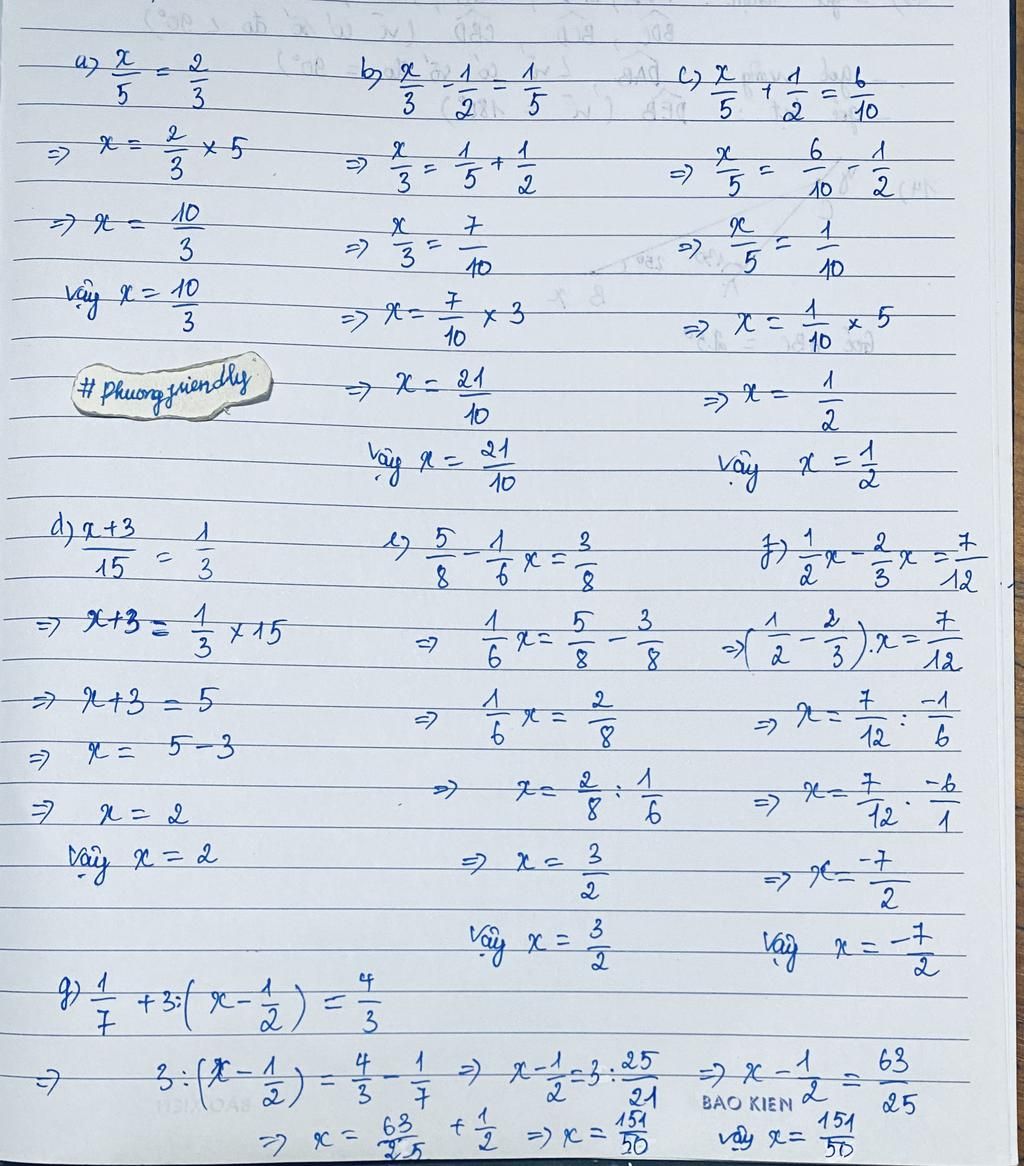 a) x/5 = 2/3
=> x = 2/3 × 5
=> x = 10/3
Vậy x = 10/3
#Phuongfriendly
b) x/3 - 1/2 = 1/5
=> x/3 = 1/5 + 1/2
=> x/3 = 7/10
=> x = 7/10 × 3
=> x = 21/10
Vậy x = 21/10
c) x/5 + 1/2 = 6/10
=> x/5 = 6/10 - 1/2
=> x/5 = 1/10
=> x = 1/10 × 5
=> x = 1/2
Vậy x = 1/2
d) (x+3)/15 = 1/3
=> x+3 = 1/3 × 15
=> x+3 = 5
=> x = 5 - 3
=> x = 2
Vậy x = 2
e) 5/8 - 1/6 x = 3/8
=> 1/6 x = 5/8 - 3/8
=> 1/6 x = 2/8
=> x = 2/8 : 1/6
=> x = 3/2
Vậy x = 3/2
f) 1/2 x - 2/3 x = 7/12
=> (1/2 - 2/3).x = 7/12
=> x = 7/12 : -1/6
=> x = 7/12 . -6/1
=> x = -7/2
Vậy x = -7/2
g) 1/7 + 3:(x - 1/2) = 4/3
=> 3:(x - 1/2) = 4/3 - 1/7 => x - 1/2 = 3 : 25/21 => x - 1/2 = 63/25
BAO KIEN
=> x = 63/25 + 1/2 => x = 151/50 vậy x = 151/50